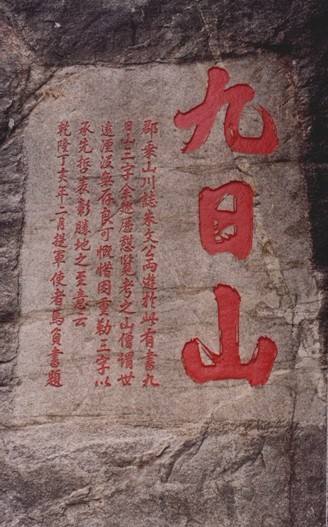 九日山
郡乘山川誌朱文公両遊於此有書九
日山三字余廵歷茲覽考之山僧謂世
遠湮沒無存良可慨惜因重勒三字以
承先哲表彰勝地之至意云
乾隆丁亥年二月提軍使者馬負書題